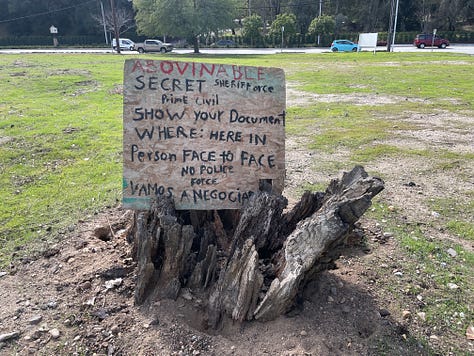 ABOVINABLE
SECRET SHERIFF orce
Prime Civil
SHOW your Document
WHERE: HERE IN
Person FACE to FACE
NO POLICE
FORCE
VAMOS A NEGOCIAR